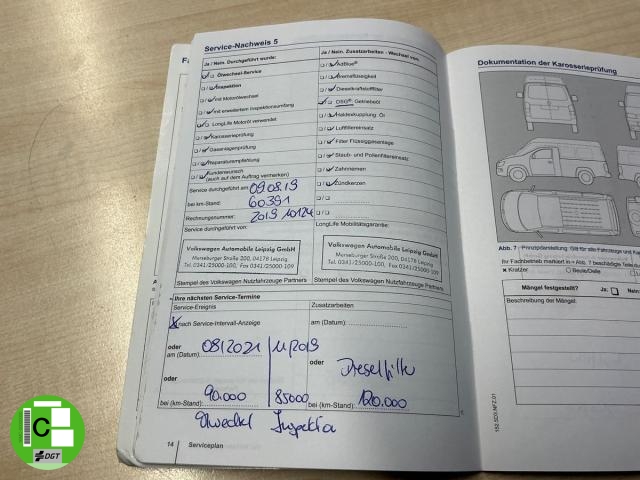 Service-Nachweis 5
Ja / Nein. Durchgeführt wurde:
Ölwechsel-Service
Inspektion
mit Motorölwechsel
mit erweitertem Inspektionsumfang
LongLife Motoröl verwendet
Karosserieprüfung
Gasanlagenprüfung
Reparaturempfehlung
Kundenwunsch
(auch auf dem Auftrag vermerken)
Service durchgeführt am: 09.08.19
bei km-Stand: 60391
Rechnungsnummer: 2019 10124
Service durchgeführt von:
Volkswagen Automobile Leipzig GmbH
Merseburger Straße 200, 04178 Leipzig
Tel. 0341/25000-100, Fax 0341/25000-109
Stempel des Volkswagen Nutzfahrzeuge Partners
Ja / Nein. Zusatzarbeiten - Wechsel von:
AdBlue®
Bremsflüssigkeit
Dieselkraftstofffilter
DSG®: Getriebeöl
Haldexkupplung: Öl
Luftfiltereinsatz
Filter Flüssiggasanlage
Staub- und Pollenfiltereinsatz
Zahnriemen
Zündkerzen
LongLife Mobilitätsgarantie:
Volkswagen Automobile Leipzig GmbH
Merseburger Straße 200, 04178 Leipzig
Tel. 0341/25000-100, Fax 0341/25000-109
Stempel des Volkswagen Nutzfahrzeuge Partners
Ihre nächsten Service-Termine
Service-Ereignis
Zusatzarbeiten
X nach Service-Intervall-Anzeige
am (Datum):
oder
am (Datum): 08/2021 | 11/2019
oder
Dieselfilter
oder
bei (km-Stand): 90.000 | 85000
bei (km-Stand): 120.000
Ölwechsel Inspektion
14 Serviceplan
Dokumentation der Karosserieprüfung
Abb. 7
Prinzipdarstellung: Gilt für alle Fahrzeuge und
Ihr Fachbetrieb markiert in » Abb. 7 beschädigte
x Kratzer
○ Beule/Delle
Mängel festgestellt?
Ja:
Nein:
Beschreibung der Mängel:
152.5D3.NFZ.01
C
DGT